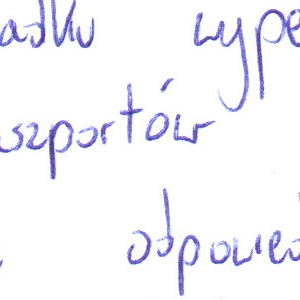 adku wype
aszportów
odpowied